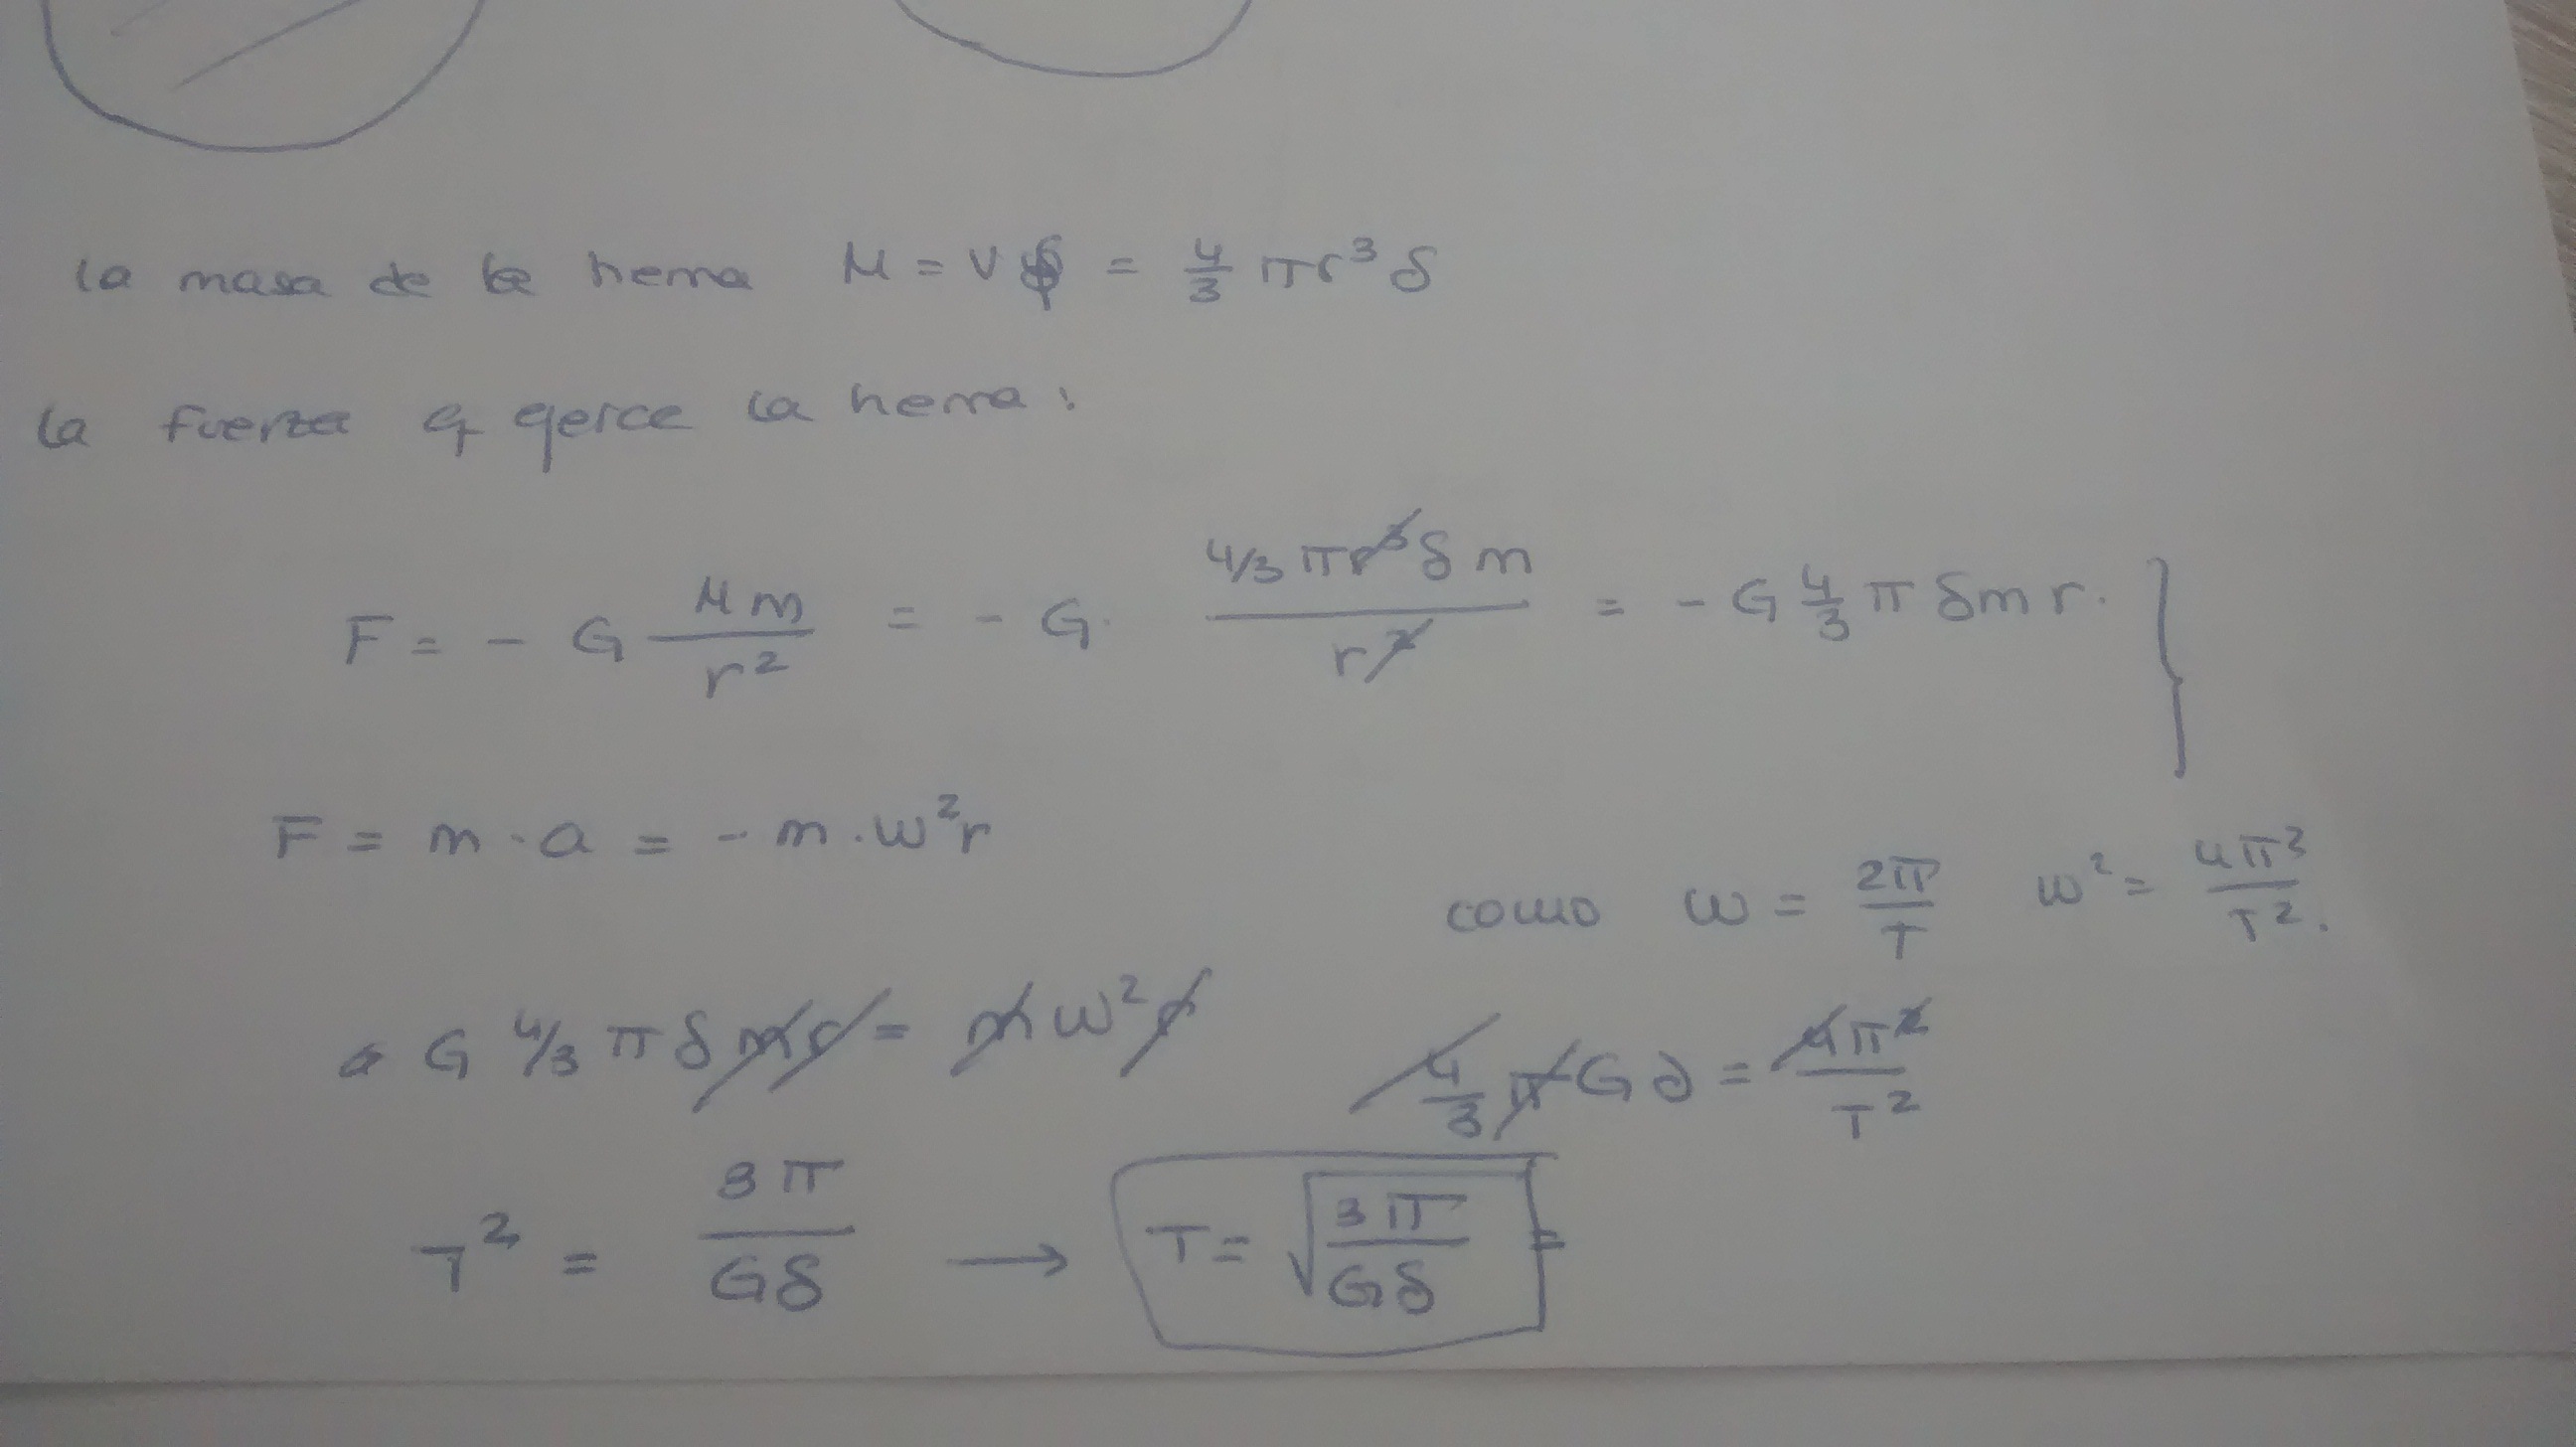 la masa de la tierra M = V δ = 4/3 πr³ δ
la fuerza q ejerce la tierra:
F = - G M m / r² = - G · 4/3 πr³ δ m / r² = - G 4/3 π δ m r.
F = m · a = - m · w² r
como w = 2π / T w² = 4π² / T².
G 4/3 π δ m r = m w² r
4/3 π G δ = 4π² / T²
T² = 3π / Gδ → T = √(3π / Gδ) =